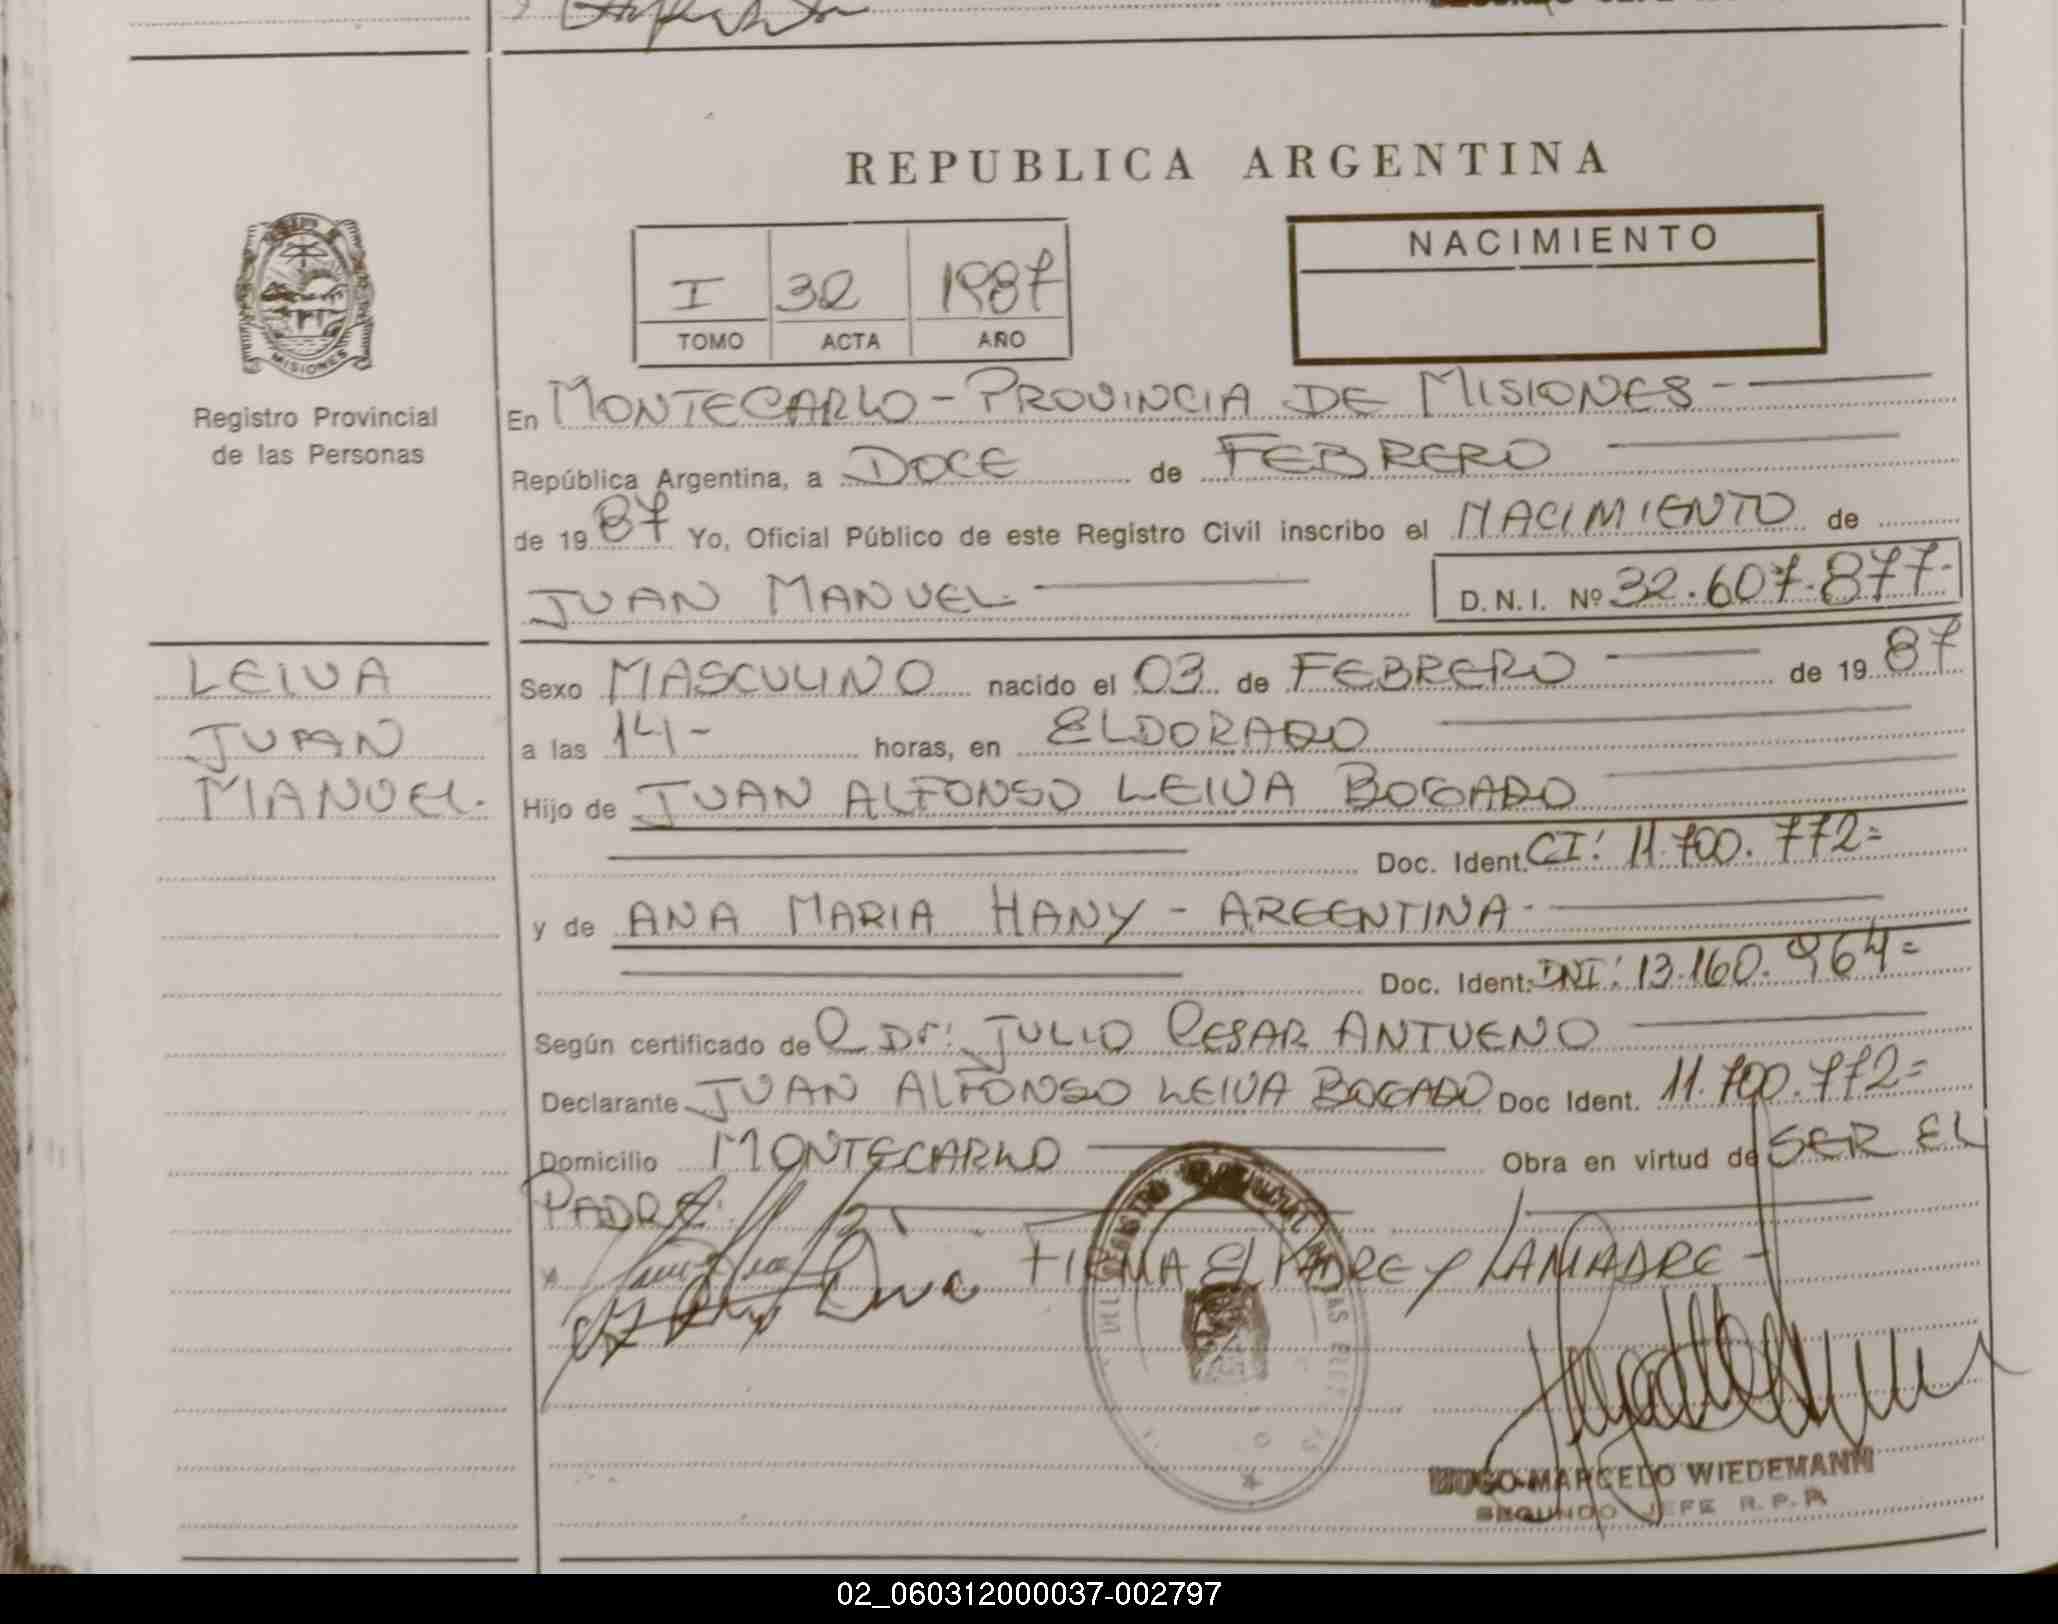 REPUBLICA ARGENTINA
I 32 1987
TOMO ACTA AÑO
NACIMIENTO
MISIONES
Registro Provincial
de las Personas
En MONTECARLO - PROVINCIA DE MISIONES -
República Argentina, a DOCE de FEBRERO
de 19 87 Yo, Oficial Público de este Registro Civil inscribo el NACIMIENTO de
JUAN MANUEL.
D.N.I. Nº 32.607.877-
LEIVA
JUAN
MANUEL.
Sexo MASCULINO nacido el 03 de FEBRERO de 19 87
a las 14- horas, en ELDORADO
Hijo de JUAN ALFONSO LEIVA BOGADO
Doc. Ident. CI: 11.700.772=
y de ANA MARIA HANY - ARGENTINA-
Doc. Ident: DNI: 13.160.964=
Según certificado de Dr: JULIO CESAR ANTUENO
Declarante JUAN ALFONSO LEIVA BOGADO Doc Ident. 11.700.772=
Domicilio MONTECARLO Obra en virtud de SER EL
PADRE.
FIRMA EL PADRE Y LA MADRE -
HUGO MARCELO WIEDEMANN
SEGUNDO JEFE R.P.P.
02_060312000037-002797